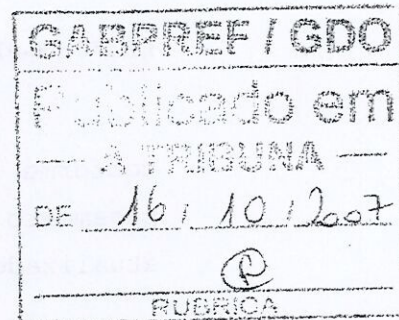 GABPREF / GDO
Publicado em
— A TRIBUNA —
DE 16 / 10 / 2007
RUBRICA